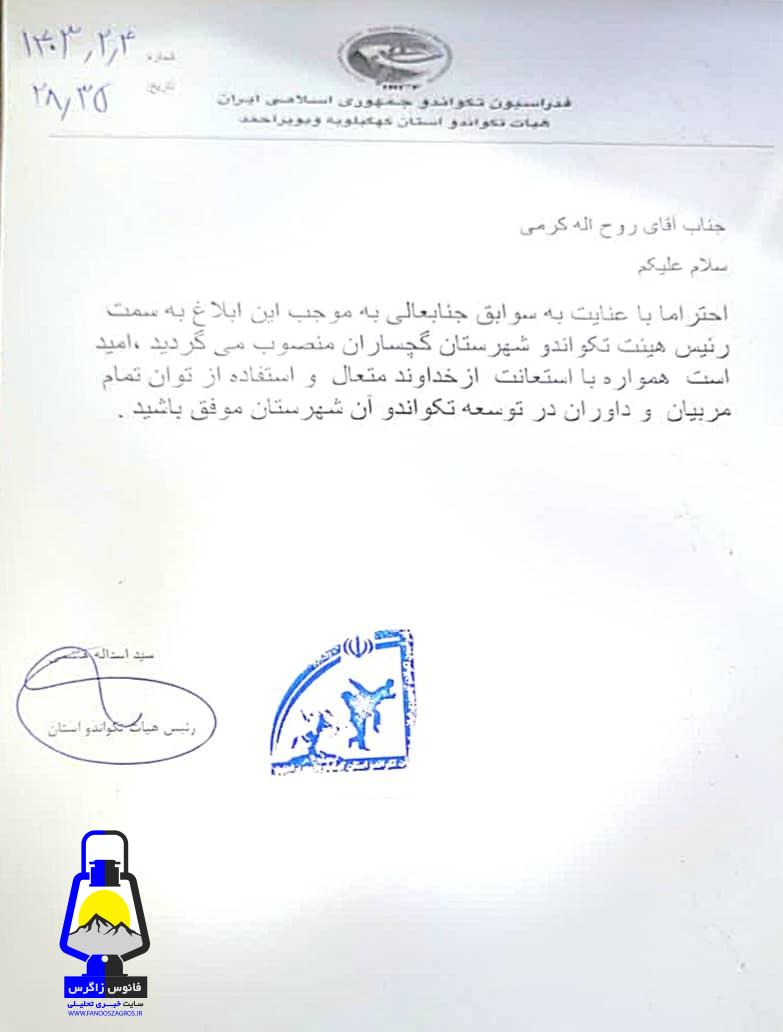 ۱۴۰۳٫۲٫۴
شماره
۲۸٫۳۵
تاریخ:
فدراسیون تکواندو جمهوری اسلامی ایران
هیات تکواندو استان کهگیلویه وبویراحمد
جناب آقای روح اله کرمی
سلام علیکم
احتراما با عنایت به سوابق جنابعالی به موجب این ابلاغ به سمت
رئیس هیئت تکواندو شهرستان گچساران منصوب می گردید ،امید
است همواره با استعانت ازخداوند متعال و استفاده از توان تمام
مربیان و داوران در توسعه تکواندو آن شهرستان موفق باشید .
سید اسداله
رئیس هیات تکواندو استان
فانوس زاگرس
سایت خبری تحلیلی
WWW.FANOOSZAGROS.IR